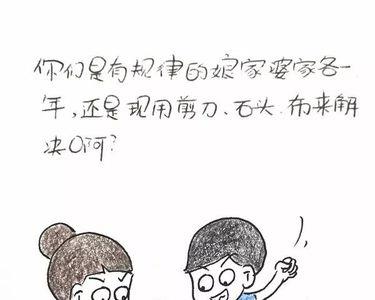 你们是有规律的娘家婆家各一
年，还是现用剪刀、石头、布来解
决啊？